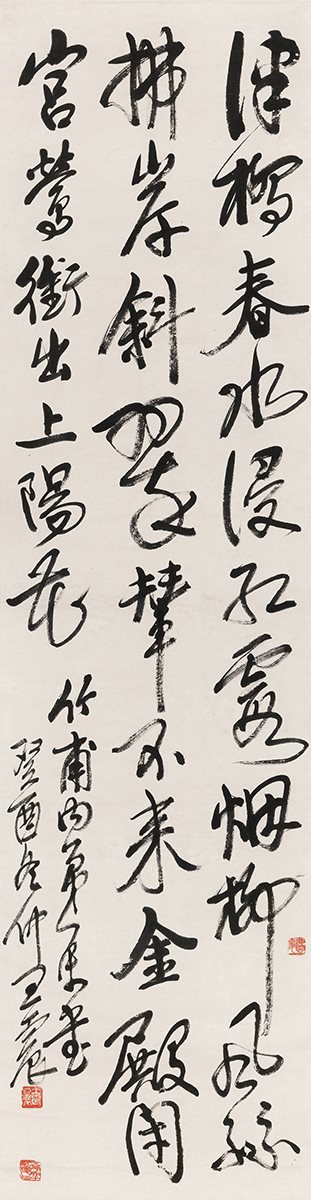 津橋春水浸紅霞煙柳風絲
拂岸斜翠輦不來金殿閉
宮鶯銜出上陽花
竹甫內弟屬書
癸酉冬仲王震